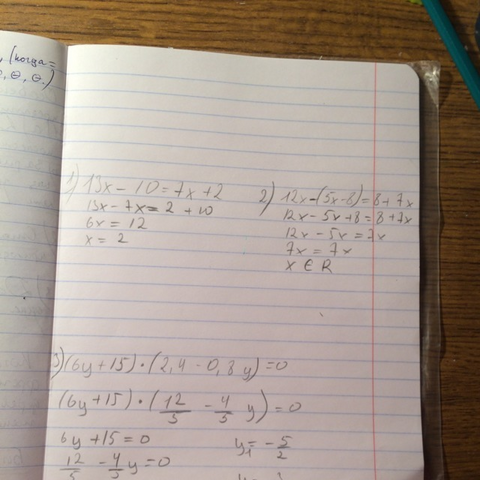 , (когда =
, ⊖, ⊖.)
1) 13x - 10 = 7x + 2
13x - 7x = 2 + 10
6x = 12
x = 2
2) 12x - (5x - 8) = 8 + 7x
12x - 5x + 8 = 8 + 7x
12x - 5x = 7x
7x = 7x
x ∈ R
3) (6y + 15) · (2,4 - 0,8y) = 0
(6y + 15) · (12/5 - 4/5 y) = 0
6y + 15 = 0
12/5 - 4/5 y = 0
y₁ = - 5/2